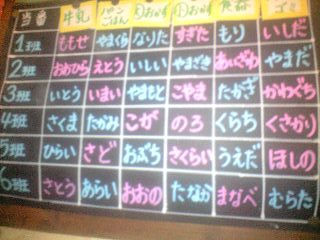 当番 牛乳 パンごはん 大おかず 小おかず 食器 ゴミ
1班 ももせ やまくら なりた すぎた もり いしだ
2班 おおひら えとう いしい やまざき あいざわ やまだ
3班 いとう いまい やまもと こやま たかぎ かわぐち
4班 さくま たかみ こが のろ くらち くさかり
5班 ひらい さど おぶち さくらい うえだ ほしの
6班 さとう あらい おおの たなか まなべ むらた